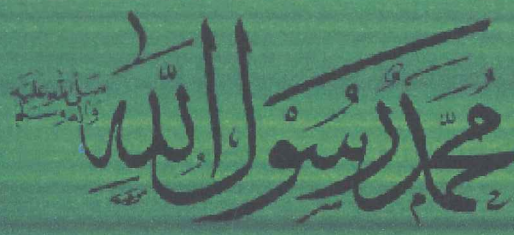 محمد رسول الله
صلى الله عليه
وآله وسلم